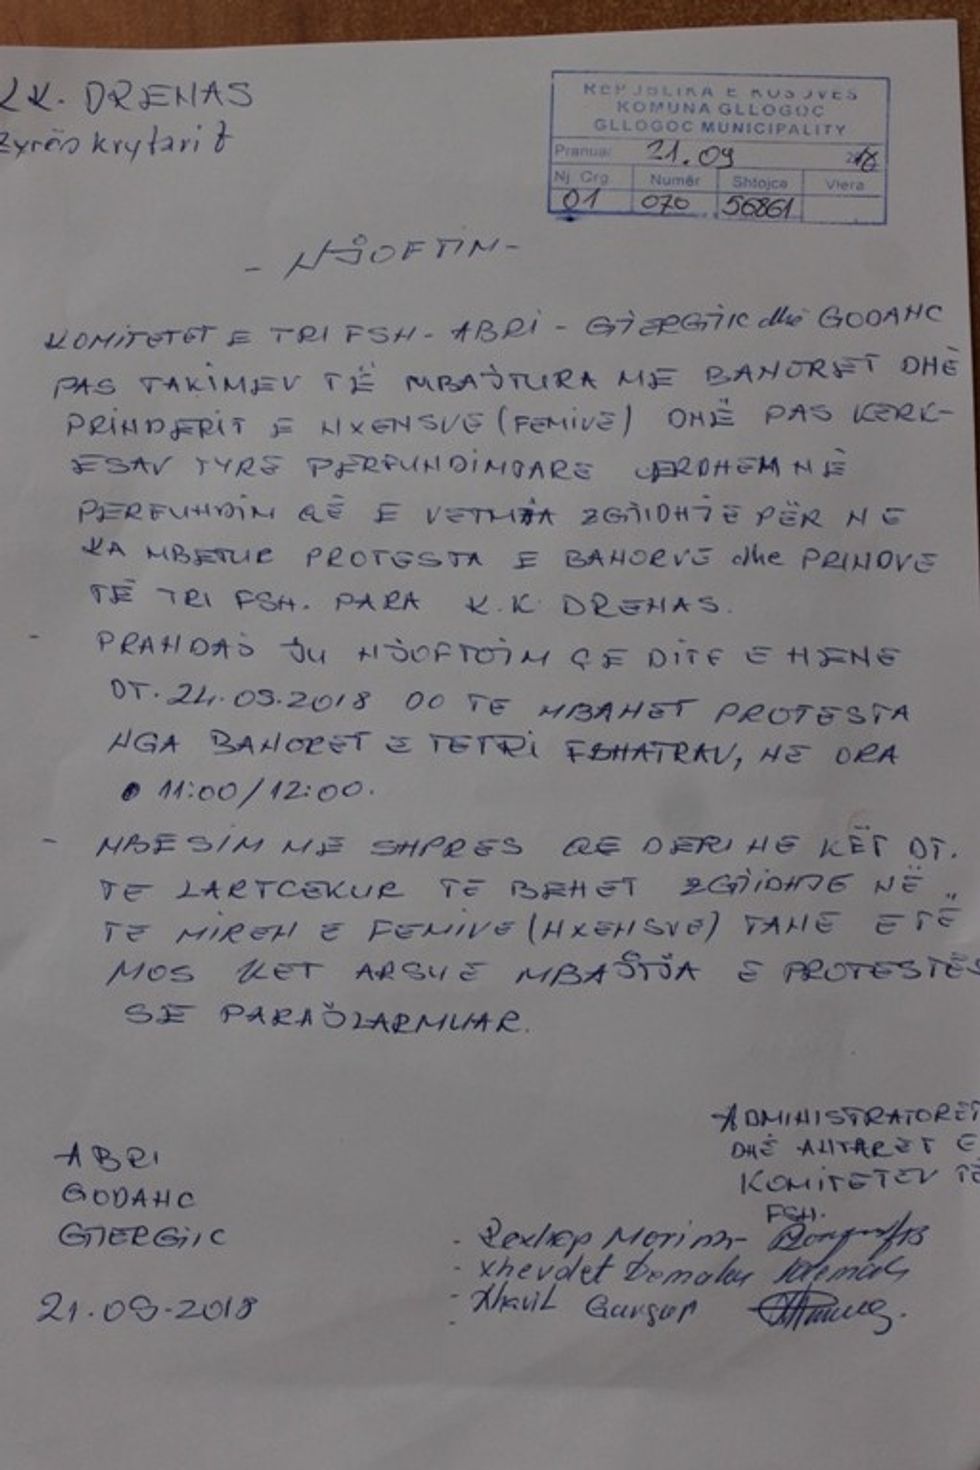 K.K. DRENAS
Zyrës krytarit
REPUBLIKA E KOSOVËS
KOMUNA GLLOGOC
GLLOGOC MUNICIPALITY
Pranuar 21.09 2018
Nj Org Numër Shtojca Vlera
01 070 56861
- NJOFTIM -
KOMITETET E TRI FSH - ABRI - GJERGJIC dhe GODANC
PAS TAKIMEV TË MBAJTURA ME BANORET DHË
PRINDERIT E NXENSVE (FEMIVE) DHË PAS KERK-
ESAV TYRE PERFUNDIMDARE ERDHEM NË
PERFUNDIM QË E VETMJA ZGJIDHJE PËR NE
KA MBETUR PROTESTA E BANORVE dhe PRINDVE
TË TRI FSH. PARA K.K DRENAS.
- PRANDAJ JU NJOFTOJM ÇE DITE E HENE
DT. 24.09.2018 DO TE MBAHET PROTESTA
NGA BANORET E TETRI FSHATRAV, NE ORA
11:00/12:00.
- MBESIM ME SHPRES QE DERI NE KËT DT.
TE LARTCEKUR TË BEHET ZGJIDHJE NË
TE MIREN E FEMIVE (NXENSVE) TANE E TË
MOS KET ARSYE MBAJTJA E PROTESTËS
SE PARAJLARMUAR.
ADMINISTRATORET
DHË ANTARET E
KOMITETEV TË
FSH.
ABRI
GODANC
GJERGJIC
- Rexhep Morina
- Xhevdet Demaku
- Xhavit
21.09-2018